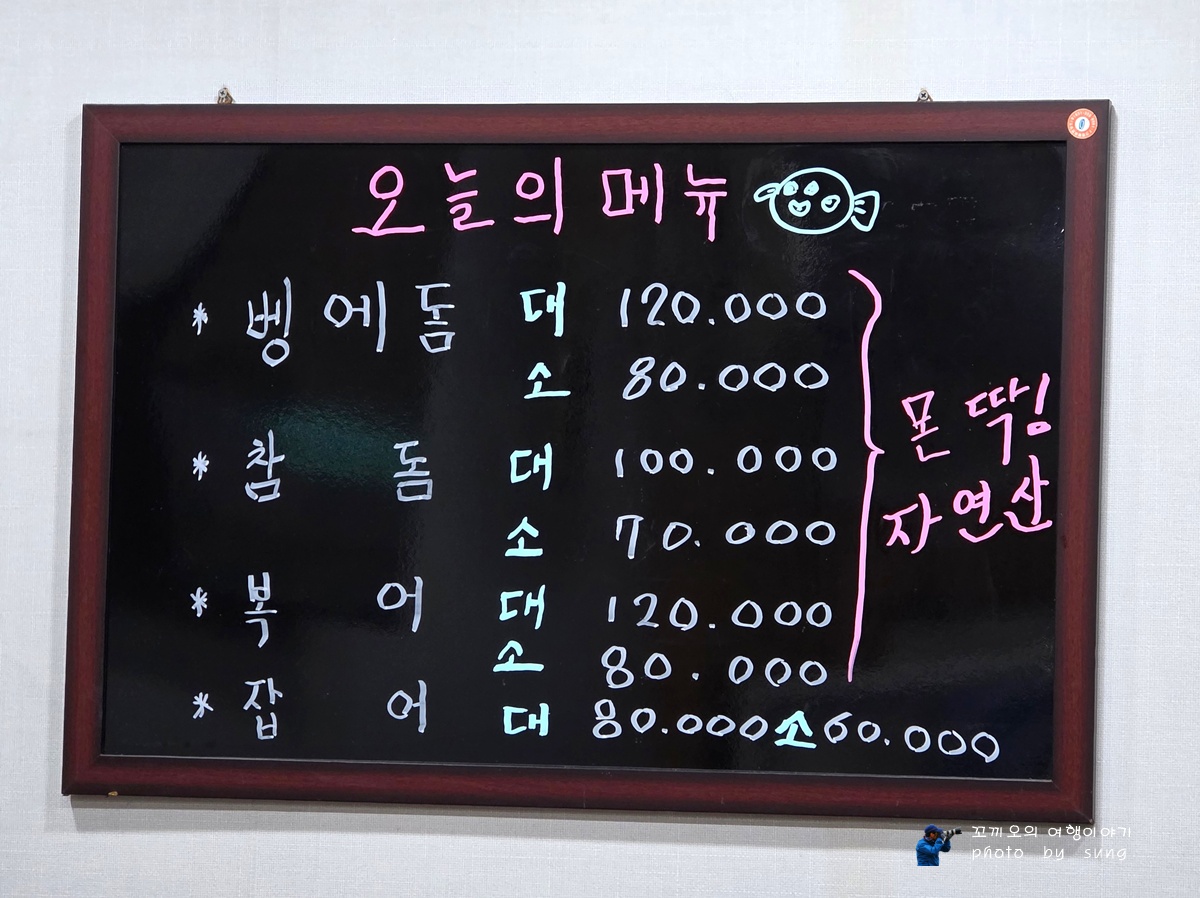 오늘의 메뉴
* 벵에돔 대 120.000
소 80.000
* 참돔 대 100.000
소 70.000
* 복어 대 120.000
소 80.000
* 잡어 대 80.000 소 60.000
몬 딱
자연산
꼬끼오의 여행이야기
photo by sung